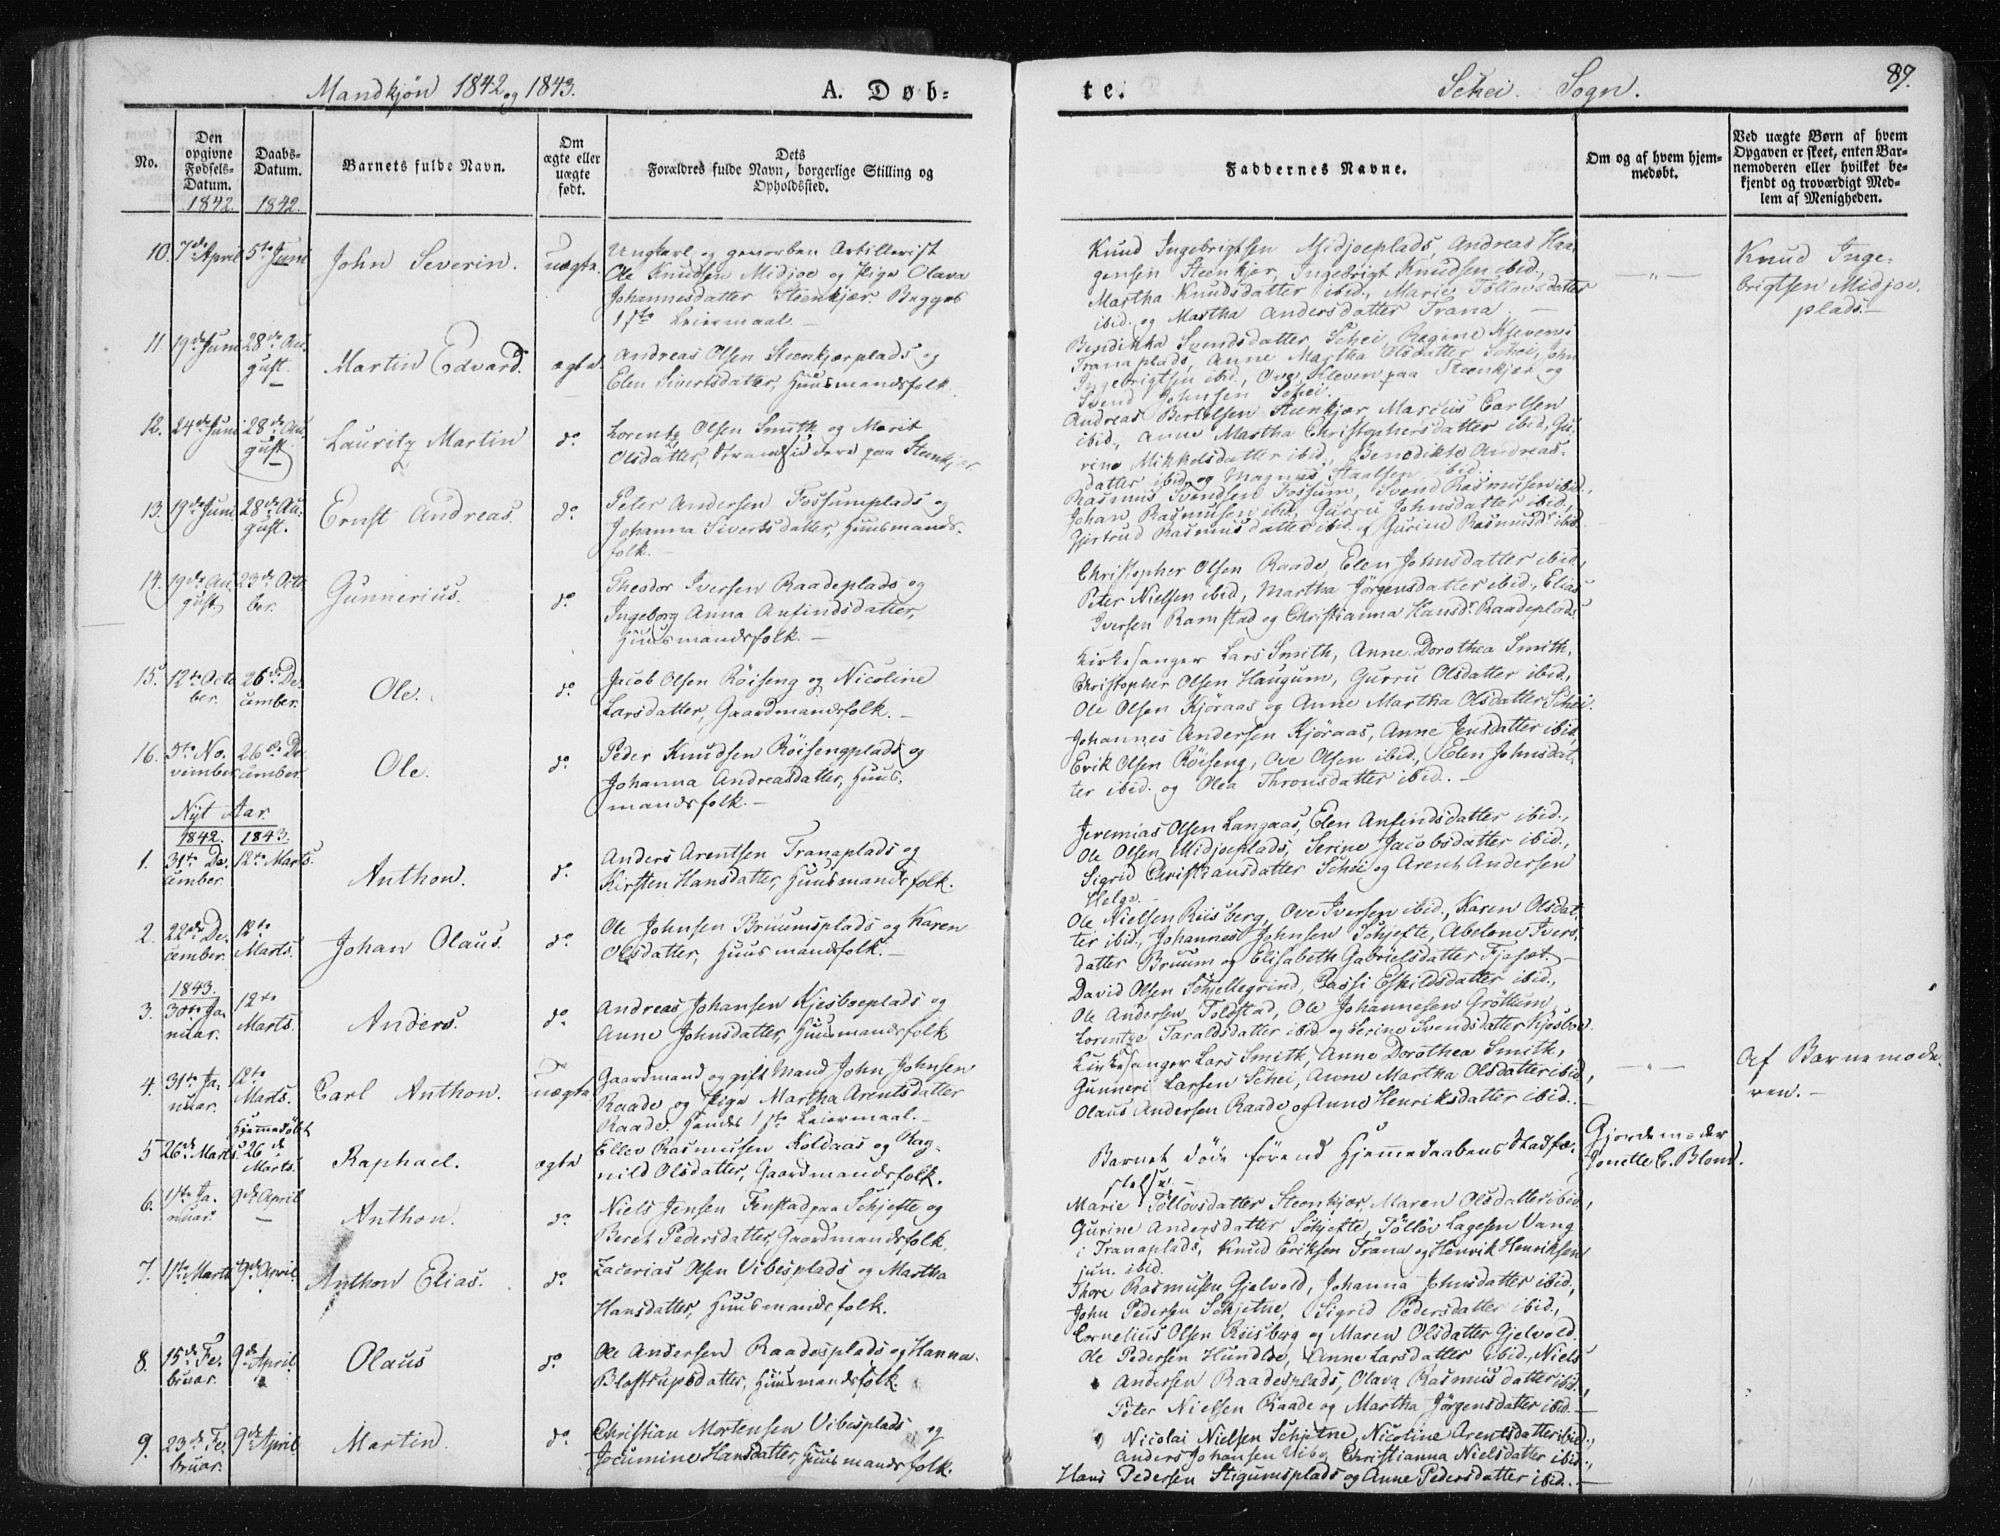 Mandkjøn 1842 og 1843.
A. Døb-
te.
Schei Sogn.
89.
No.
Den opgivne Fødsels-Datum.
Daabs-Datum.
Barnets fulde Navn.
Om ægte eller uægte født.
Dets Forældres fulde Navn, borgerlige Stilling og Opholdssted.
Faddernes Navne.
Om og af hvem hjemmedøbt.
Ved uægte Børn af hvem Opgaven er skeet, enten Barnemoderen eller hvilket bekjendt og troværdigt Medlem af Menigheden.
1842. 1842.
10. 7de April 5te Juni John Severin. uægte.
Ungkarl og gevorben Artillerist
Ole Knudsen Midjoe og Pige Olava
Johannesdatter Steenkjær Begges
1ste Leiermaal. —
Knud Ingebrigtsen Midjoeplads, Andreas Haa-
gensen Steenkjær, Ingebrigt Knudsen ibid.,
Martha Knudsdatter ibid., Marie Tollovsdatter
ibid. og Martha Andersdatter Trana —
— " —
Knud Inge-
brigtsen Midjoe
plads. —
11 19de Juni 28de Au-
gust. Martin Edvard. ægte.
Andreas Olsen Steenkjærplads og
Elen Sivertsdatter, Huusmandsfolk.
Bendikka Svendsdatter Schei, Regine Kleven
Tranaplads, Anne Martha Olsdatter Schei, John
Ingebrigtsen ibid., Ove Kleven paa Steenkjær og
Svend Johnsen Schei.
12. 24de Juni 28de Au-
gust Lauritz Martin do.
Lorentz Olsen Smith og Marit
Olsdatter, Strandsiddere paa Steenkjær
Andreas Bertelsen Steenkjær, Marcus Carlsen
ibid., Anne Martha Christophersdatter ibid, Gu-
rine Mikkelsdatter ibid., Benedikte Andreas-
datter ibid. og Magnus Staalsen ibid.
13. 19de Juni 28de Au-
gust. Ernst Andreas. do.
Peter Andersen Fossumplads og
Johanna Sivertsdatter, Huusmands-
folk. —
Rasmus Svendsen Fossum, Svend Rasmusen ibid.,
Johan Rasmusen ibid., Gurru Johnsdatter ibid.,
Gjertrud Rasmusdatter ibid. og Gurine Rasmusdr. ibid.
14. 19de Au-
gust. 23de Octo-
ber. Gunnerius. do.
Theodor Iversen Raadeplads og
Ingeborg Anna Anfindsdatter,
Huusmandsfolk. —
Christopher Olsen Raade, Elen Johnsdatter ibid.,
Peter Nielsen ibid, Martha Jørgensdatter ibid., Elias
Iversen Ramstad og Christianna Hansdr. Raadeplads.
15. 12te Octo-
ber. 26de De-
cember. Ole. do.
Jacob Olsen Röiseng og Nicoline
Larsdatter, Gaardmandsfolk. —
Kirkesanger Lars Smith, Anne Dorothea Smith,
Christopher Olsen Haugum, Gurru Olsdatter ibid.,
Ole Olsen Kjøraas og Anne Martha Olsdatter Schei.
16. 5te No-
vember 26de De-
cember. Ole. do.
Peder Knudsen Röisengplads og
Johanna Andreasdatter, Huus-
mandsfolk. —
Johannes Andersen Kjøraas, Anne Jensdatter ibid.
Erik Olsen Röiseng, Ove Olsen ibid., Elen Johnsdat-
ter ibid. og Olea Thronsdatter ibid. —
Nyt Aar.
1842. 1843.
1. 31te De-
cember. 12te Marts. Anthon. do.
Anders Arentsen Tranaplads og
Kirsten Hansdatter, Huusmandsfolk.
Jeremias Olsen Langaas, Elen Anfindsdatter ibid.,
Ole Olsen Midjoeplads, Serine Jacobsdatter ibid.,
Sigrid Christiansdatter Schei og Arent Andersen
Helge. —
2. 22de De-
cember. 12te
Marts. Johan Olaus. do.
Ole Johnsen Bruumsplads og Karen
Olsdatter, Huusmandsfolk. —
Ole Nielsen Riisberg, Ove Iversen ibid., Karen Olsdat-
ter ibid., Johannes Johnsen Schjefte, Abelone Ivers-
datter Bruum og Elisabeth Gabrielsdatter Fjesæt. —
1843.
3. 30te Ja-
nuar. 12te
Marts. Anders. do.
Andreas Johansen Kjesboeplads og
Anne Johnsdatter, Huusmandsfolk
David Olsen Schjellegrind, Cassi Eskildsdatter ibid.,
Ole Andersen Foldstad, Ole Johannesen Gröttem,
Lorentze Taraldsdatter ibid. og Serine Svendsdatter Kjosboe.
4. 31te Ja-
nuar. 12te
Marts. Carl Anthon. uægte
Gaardmand og gift Mand John Johnsen
Raade og Pige Martha Arentsdatter
Raade. Hendes 1ste Leiermaal. —
Kirkesanger Lars Smith, Anne Dorothea Smith,
Gunneri Larsen Schei, Anne Martha Olsdatter ibid.,
Olaus Andersen Raade og Anne Henriksdatter ibid. —
— " —
Af Barnemode-
ren. —
Hjemmedöbt
5 26de Marts 26de
Marts. Raphael. ægte
Ellev Rasmusen Koldaas og Rag-
nild Olsdatter, Gaardmandsfolk.
Barnet döde förend Hjemmedaabens Stadfæ-
stelse. —
Gjordemoder
Jonette C. Blom.
6. 1ste Ja-
nuar. 9de April
— Anthon. do.
Niels Jensen Fenstad paa Schjefte og
Beret Pedersdatter, Gaardmandsfolk.
Marie Töllövsdatter Steenkjær, Maren Olsdatter ibid.,
Gurine Andersdatter Schjefte, Töllöv Lagesen Vang
i Tranaplads, Knud Eriksen Trana og Henrik Henriksen
jun. ibid.
7. 1ste Marts 9de April. Anthon Elias. do.
Zacarias Olsen Vibesplads og Martha
Hansdatter, Huusmandsfolk.
Thore Rasmusen Gjelvold, Johanna Johnsdatter ibid.,
John Pedersen Schjetne, Sigrid Pedersdatter ibid.,
Cornelius Olsen Riisberg og Maren Olsdatter Gjelvold.
8. 15de Fe-
bruar. 9de April. Olaus do.
Ole Andersen Raadesplads og Hanna
Blostrupsdatter, Huusmandsfolk.
Ole Pedersen Hundlöe, Anne Larsdatter ibid., Niels
Andersen Raadesplads, Olava Rasmusdatter ibid.,
Peter Nielsen Raade og Martha Jørgensdatter ibid. —
9. 23de Fe-
bruar. 9de April Martin. do.
Christian Mortensen Vibesplads og
Jocumine Hansdatter, Huusmandsfolk.
Nicolai Nielsen Schjetne, Nicoline Arentsdatter ibid.,
Anders Johansen Vibe, Christianna Nielsdatter ibid.,
Hans Pedersen Stigumsplads og Anne Pedersdatter ibid. —